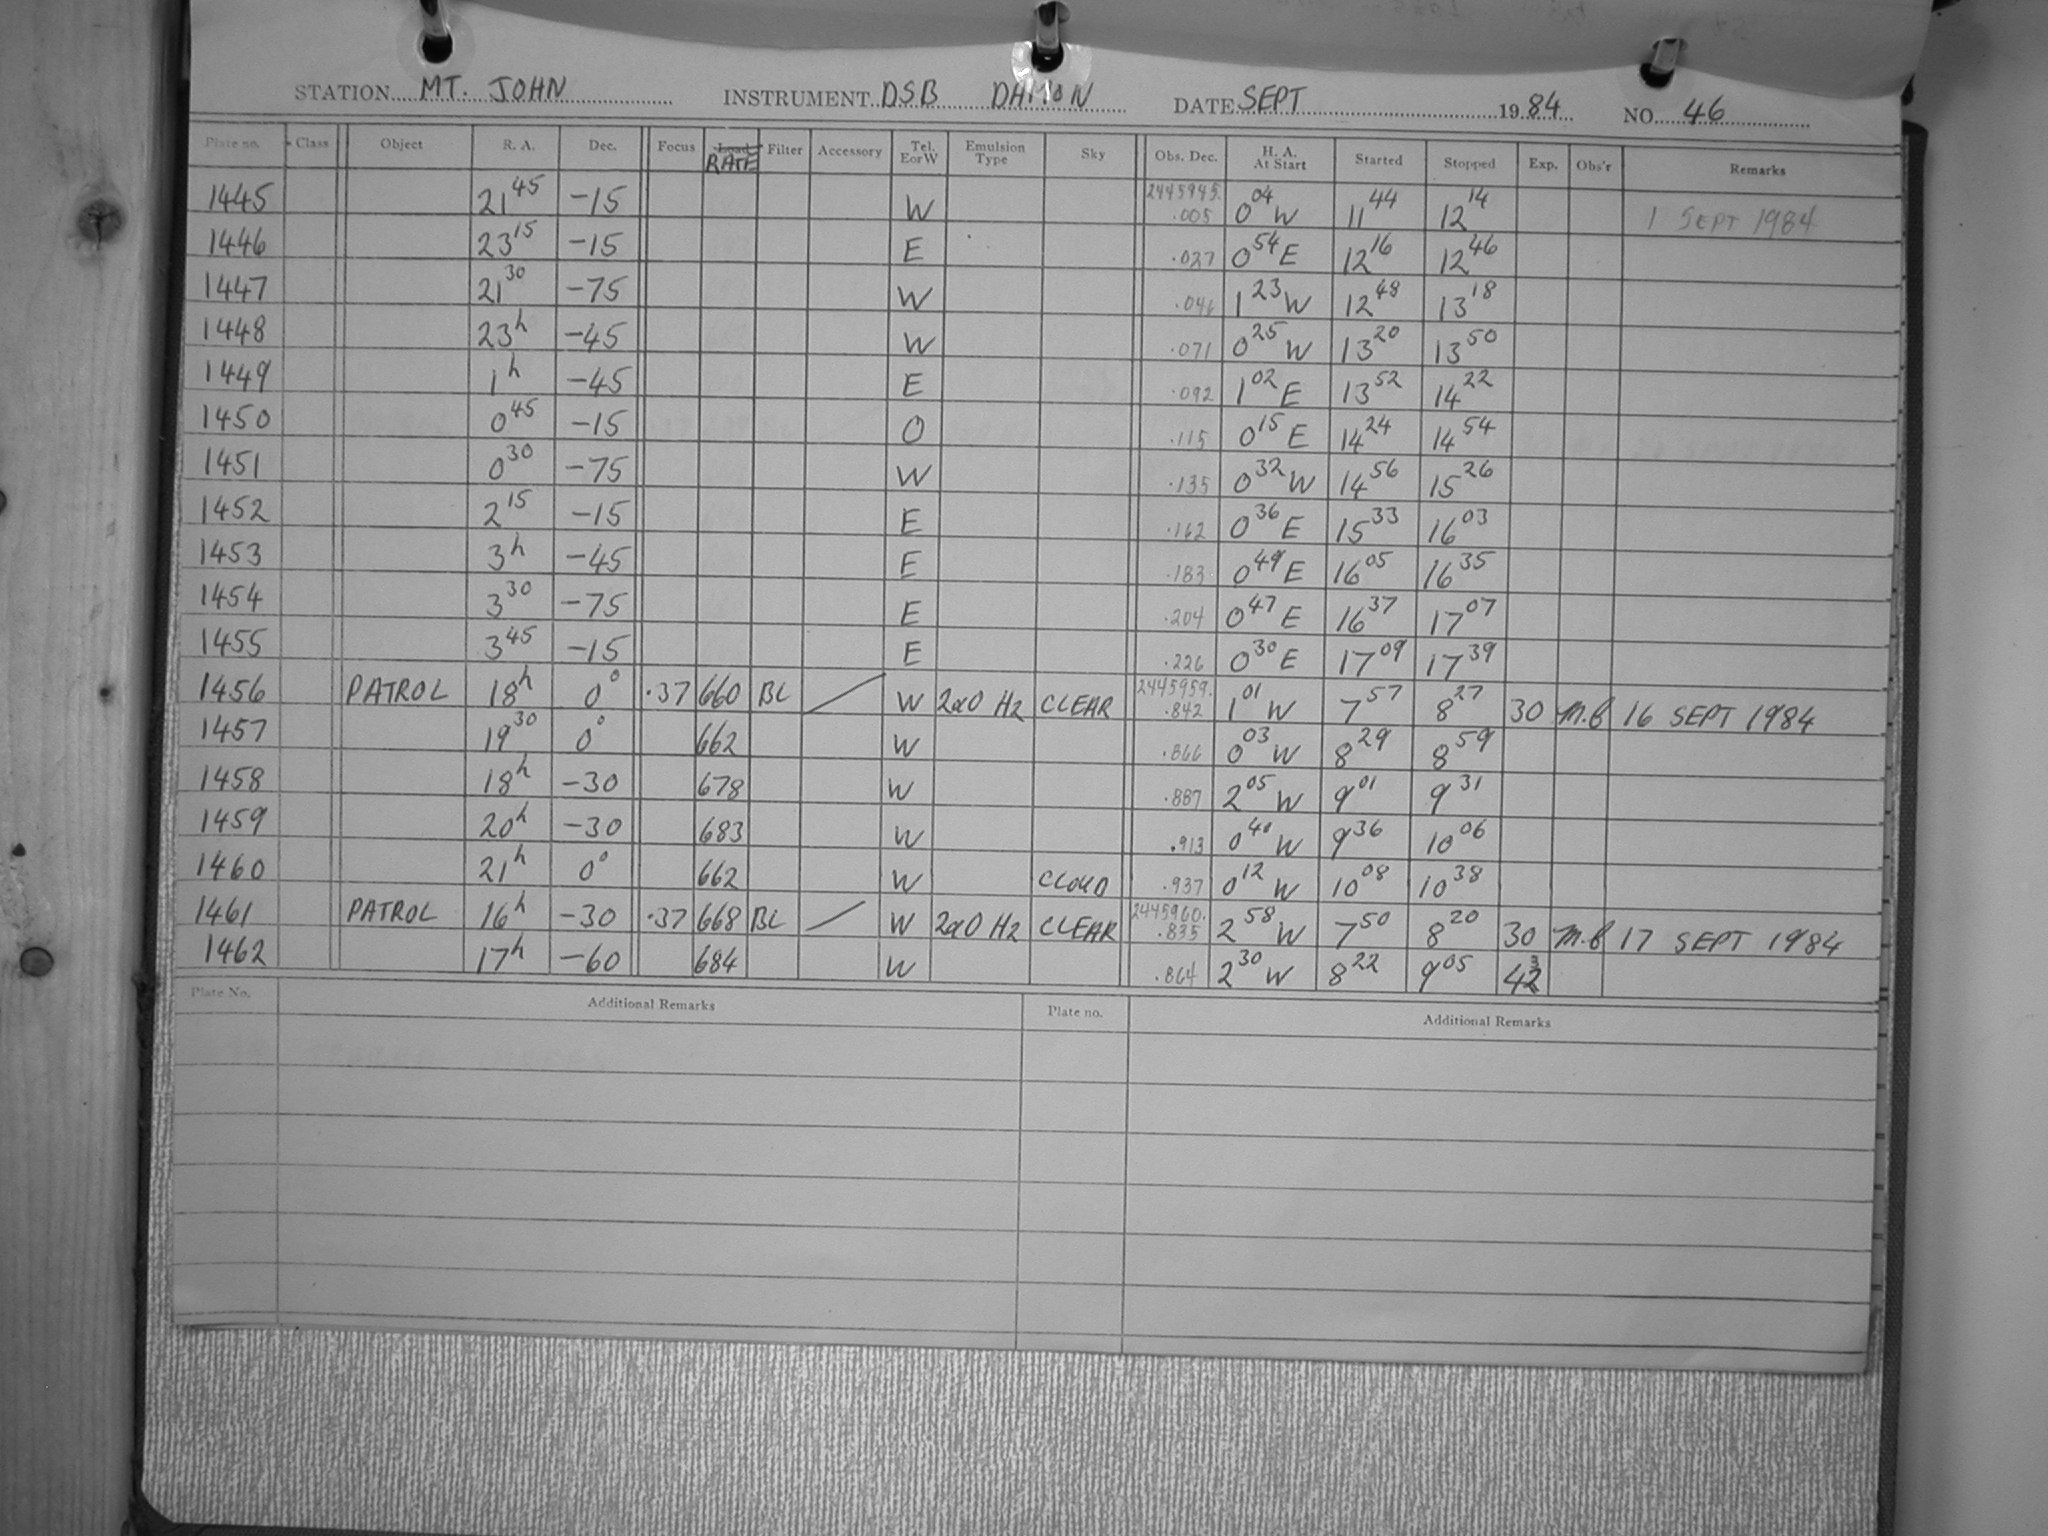 STATION MT. JOHN INSTRUMENT DSB DAMON DATE SEPT 1984 NO. 46
Plate no. Class Object R. A. Dec. Focus Load RATE Filter Accessory Tel. EorW Emulsion Type Sky Obs. Dec. H. A. At Start Started Stopped Exp. Obs'r Remarks
1445 21 45 -15 W 2445945. .005 0 04 W 11 44 12 14 1 SEPT 1984
1446 23 15 -15 E .027 0 54 E 12 16 12 46
1447 21 30 -75 W .046 1 23 W 12 48 13 18
1448 23h -45 W .071 0 25 W 13 20 13 50
1449 1h -45 E .092 1 02 E 13 52 14 22
1450 0 45 -15 O .115 0 15 E 14 24 14 54
1451 0 30 -75 W .135 0 32 W 14 56 15 26
1452 2 15 -15 E .162 0 36 E 15 33 16 03
1453 3h -45 E .183 0 49 E 16 05 16 35
1454 3 30 -75 E .204 0 47 E 16 37 17 07
1455 3 45 -15 E .226 0 30 E 17 09 17 39
1456 PATROL 18h 0° .37 660 BL W 2αO H2 CLEAR 2445959. .842 1 01 W 7 57 8 27 30 M.C 16 SEPT 1984
1457 19 30 0° 662 W .866 0 03 W 8 29 8 59
1458 18h -30 678 W .887 2 05 W 9 01 9 31
1459 20h -30 683 W .913 0 40 W 9 36 10 06
1460 21h 0° 662 W CLOUD .937 0 12 W 10 08 10 38
1461 PATROL 16h -30 .37 668 BL W 2αO H2 CLEAR 2445960. .835 2 58 W 7 50 8 20 30 M.C 17 SEPT 1984
1462 17h -60 684 W .864 2 30 W 8 22 9 05 43
Plate No. Additional Remarks Plate no. Additional Remarks